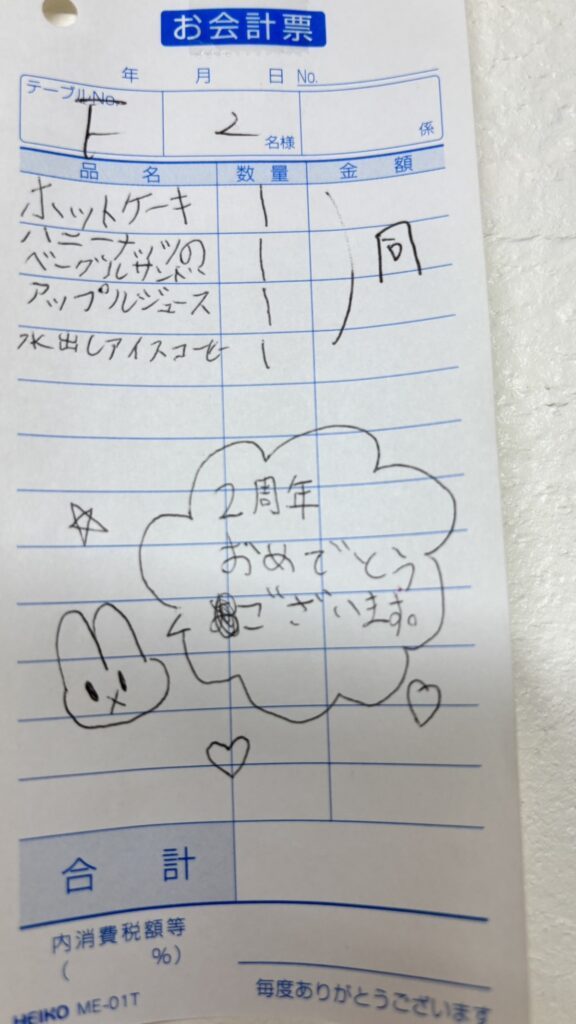 お会計票
年 月 日 No.
テーブルNo. F 2 名様 係
品名 数量 金額
ホットケーキ 1
ハニーナッツの
ベーグルサンド 1 同
アップルジュース 1
水出しアイスコーヒー 1
2周年
おめでとう
ございます。
合計
内消費税額等
( %)
毎度ありがとうございます
HEIKO ME-01T